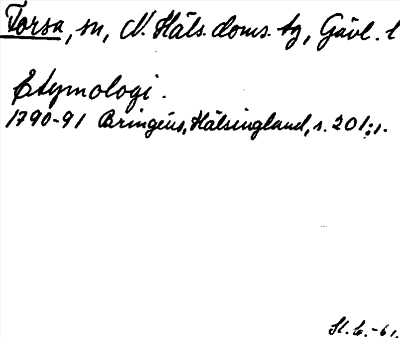 Torsa, sn, N. Häls. doms. tg, Gävl. l
Etymologi.
1790-91 Bringéus, Hälsingland, s. 201:1.
St. L. -61.